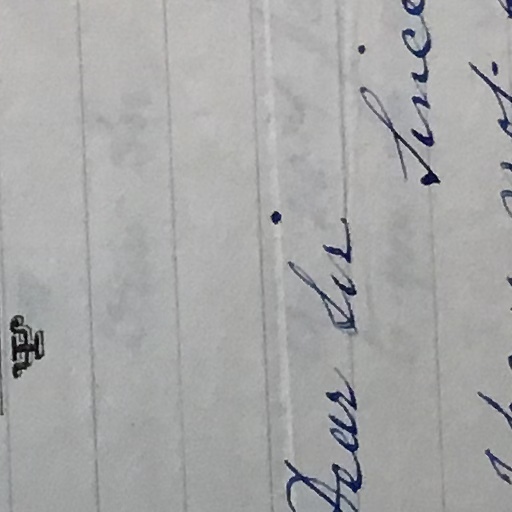 Dear Sir
Since
I have not